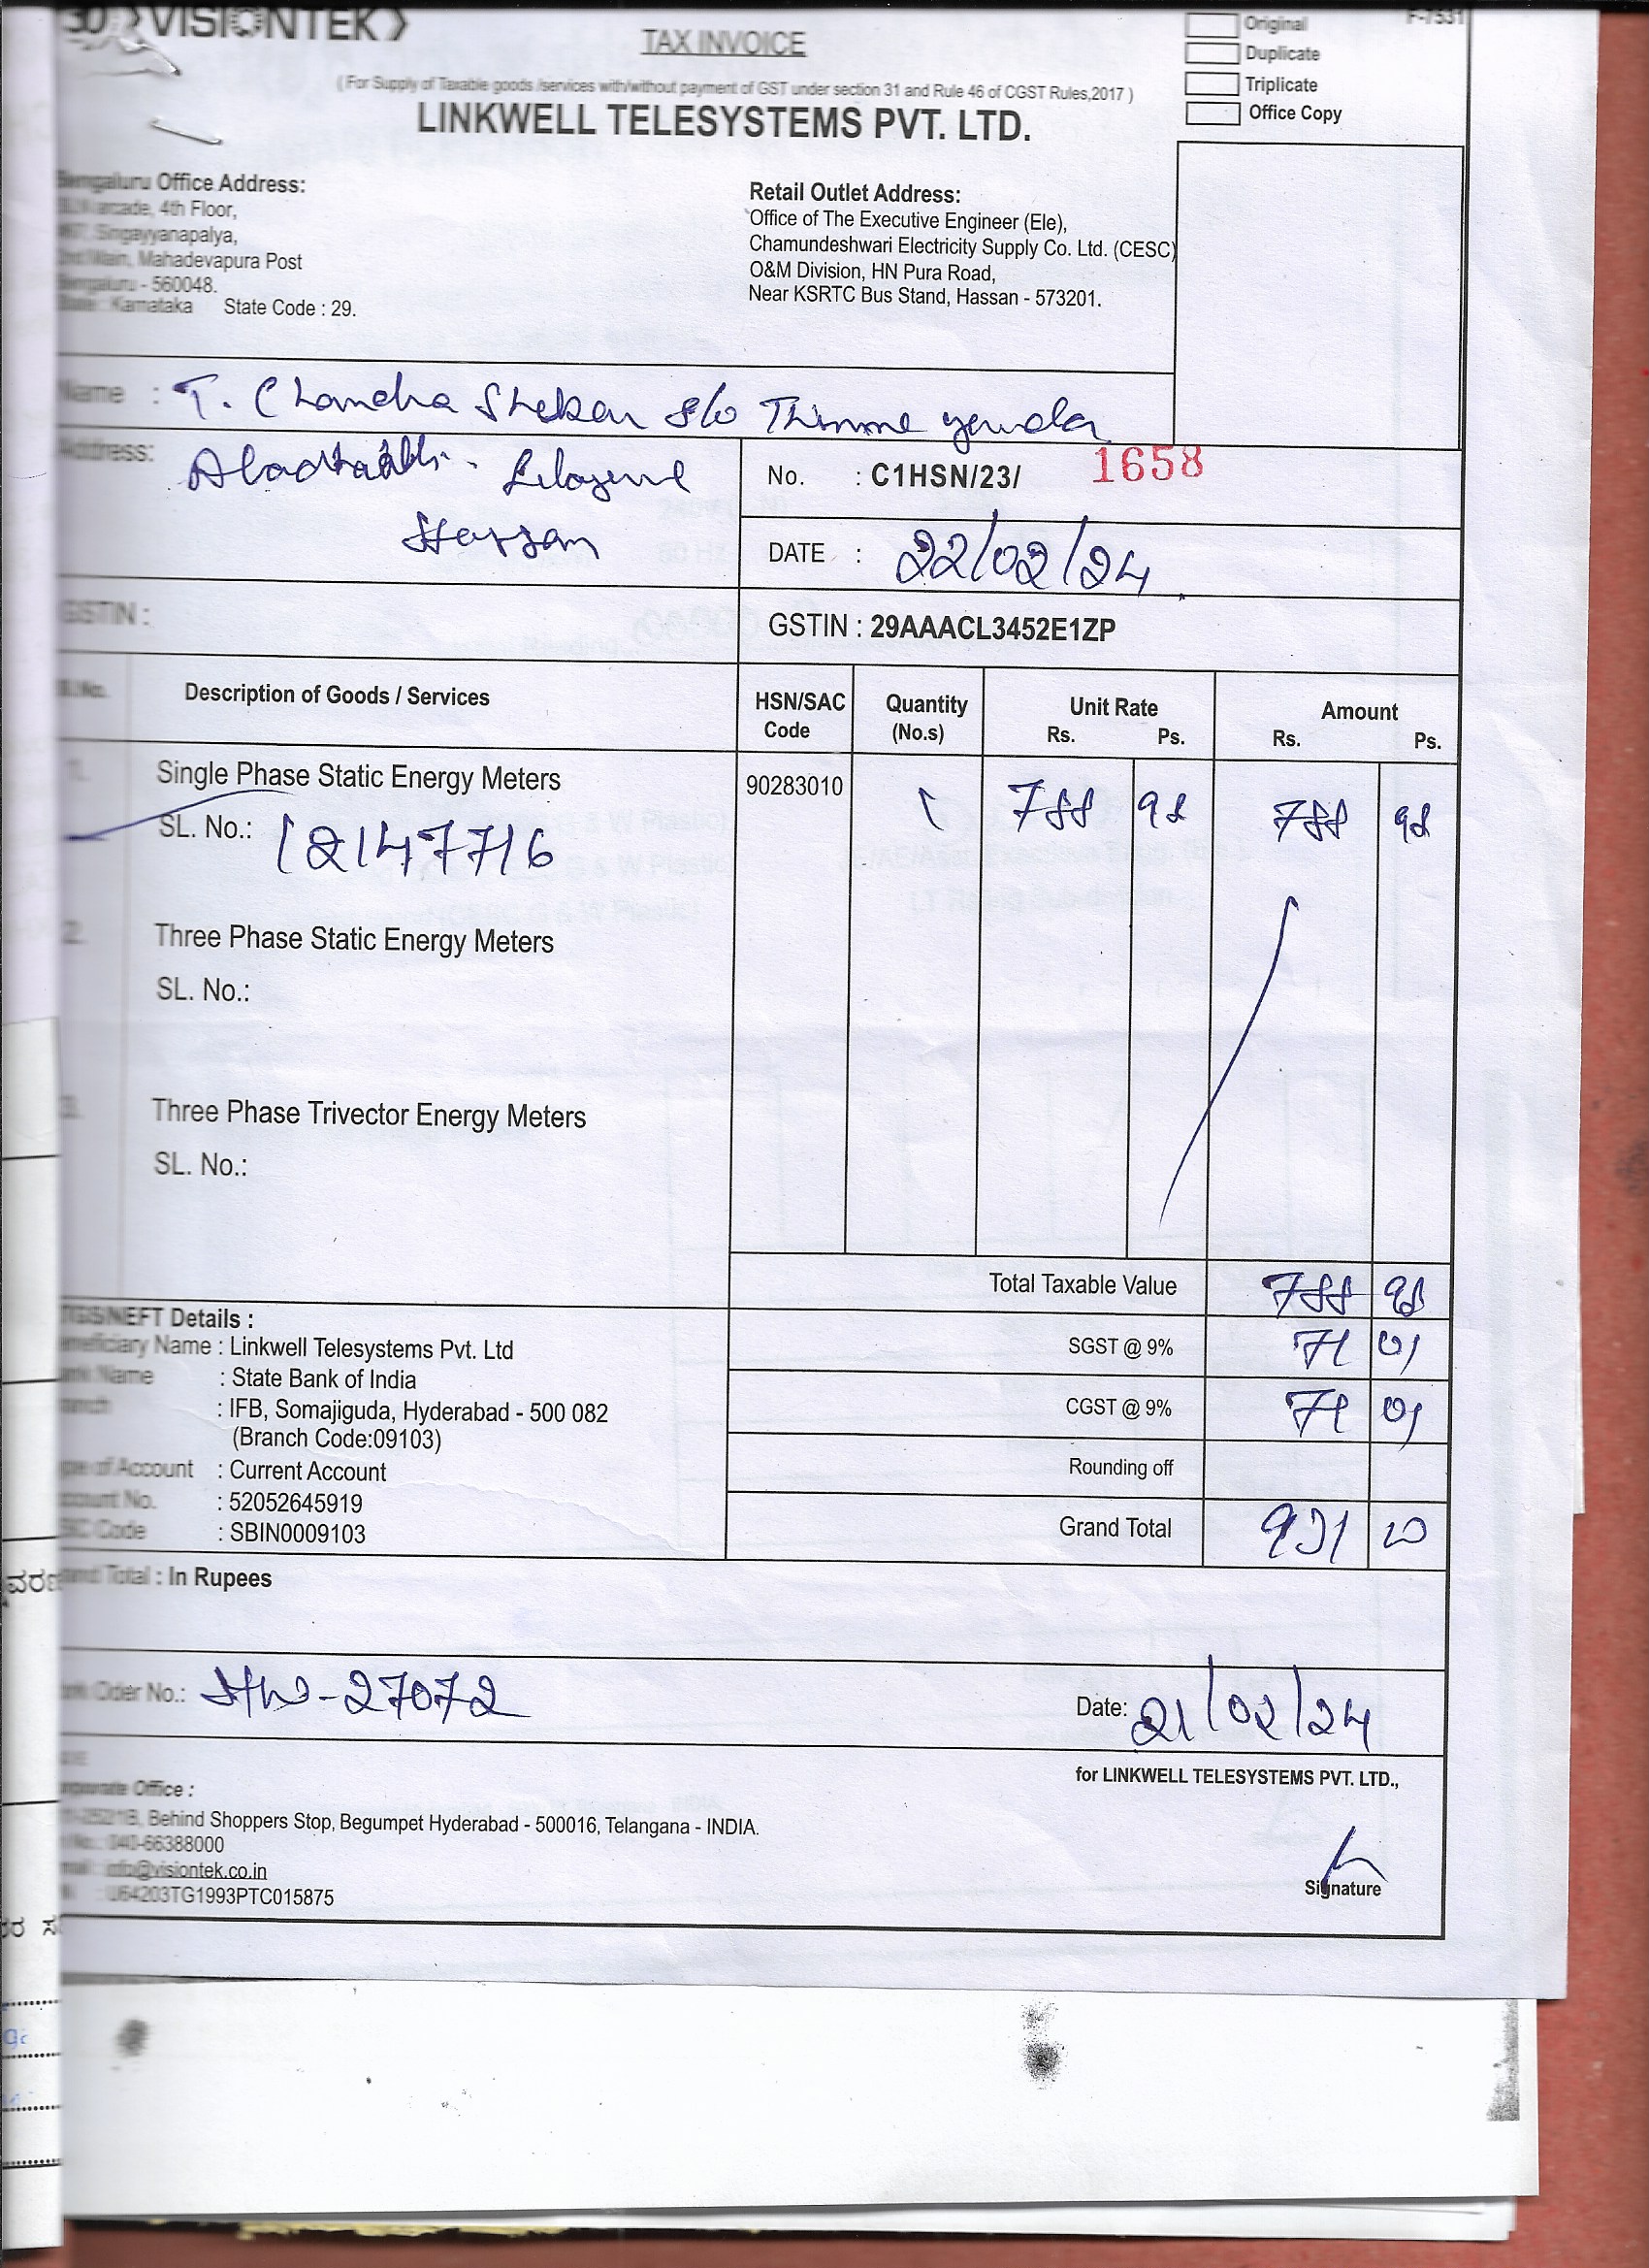 VISIONTEK
TAX INVOICE
(For Supply of Taxable goods /services with/without payment of GST under section 31 and Rule 46 of CGST Rules,2017)
LINKWELL TELESYSTEMS PVT. LTD.
F-7531
Original
Duplicate
Triplicate
Office Copy
Bengaluru Office Address:
arcade, 4th Floor,
Singayyanapalya,
Main, Mahadevapura Post
Bengaluru - 560048.
State : Karnataka State Code : 29.
Retail Outlet Address:
Office of The Executive Engineer (Ele),
Chamundeshwari Electricity Supply Co. Ltd. (CESC)
O&M Division, HN Pura Road,
Near KSRTC Bus Stand, Hassan - 573201.
Name : T. Chandra Shekar S/o Thimme gowda
Address:
Hassan
No. : C1HSN/23/ 1658
DATE : 22/02/24
GSTIN :
GSTIN : 29AAACL3452E1ZP
Sl.No. Description of Goods / Services HSN/SAC Code Quantity (No.s) Unit Rate Rs. Ps. Amount Rs. Ps.
1. Single Phase Static Energy Meters 90283010 1 788 98 788 98
SL. No.: 12147716
2. Three Phase Static Energy Meters
SL. No.:
3. Three Phase Trivector Energy Meters
SL. No.:
Total Taxable Value 788 98
SGST @ 9% 71 01
CGST @ 9% 71 01
Rounding off
Grand Total 931 00
RTGS/NEFT Details :
Beneficiary Name : Linkwell Telesystems Pvt. Ltd
Bank Name : State Bank of India
Branch : IFB, Somajiguda, Hyderabad - 500 082
(Branch Code:09103)
Type of Account : Current Account
Account No. : 52052645919
IFSC Code : SBIN0009103
Grand Total : In Rupees
Work Oder No.: HW-27072
Date: 21/02/24
for LINKWELL TELESYSTEMS PVT. LTD.,
Corporate Office :
Behind Shoppers Stop, Begumpet Hyderabad - 500016, Telangana - INDIA.
040-66388000
info@visiontek.co.in
: U64203TG1993PTC015875
Signature